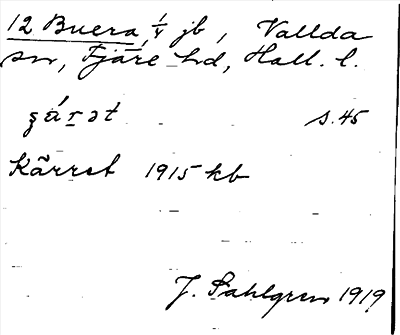 12 Buera, 1/4 jb, Vallda
sn, Fjäre hd, Hall. l.
s. 45
Kärret 1915 kb
J. Sahlgren 1919